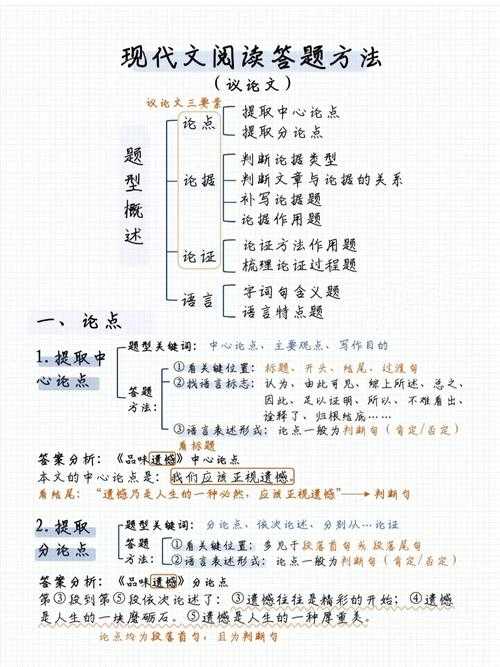 现代文阅读答题方法
（议论文）
议论文三要素
题型概述
论点
提取中心论点
提取分论点
论据
判断论据类型
判断文章与论据的关系
补写论据题
论据作用题
论证
论证方法作用题
梳理论证过程题
语言
字词句含义题
语言特点题
一、论点
1.提取中心论点
题型关键词：中心论点、主要观点、写作目的
答题方法：
①看关键位置：标题、开头、结尾、过渡句
②找语言标志：认为、由此可见、综上所述、总之、
因此、足以证明、所以、不难看出、
诠释了、归根结底……
③语言表述形式：论点一般为判断句（肯定/否定）
看标题
答案分析：《品味遗憾》中心论点
本文的中心论点是：我们应该正视遗憾。
看结尾：“遗憾乃是人生的一种必然，应该正视遗憾”→判断句
2.提取分论点
题型关键词：分论点、依次论述、分别从…论证
答题方法：
①看关键位置：多见于段落首句或段落尾句
②语言表述形式：论点一般为判断句（肯定/否定）
答案分析：《品味遗憾》分论点
第③段到第⑤段依次论述了：③遗憾往往是精彩的开始；④遗憾
是人生的一块磨砺石。⑤遗憾是人生的一种厚重美。
论点均为段落首句，且为判断句